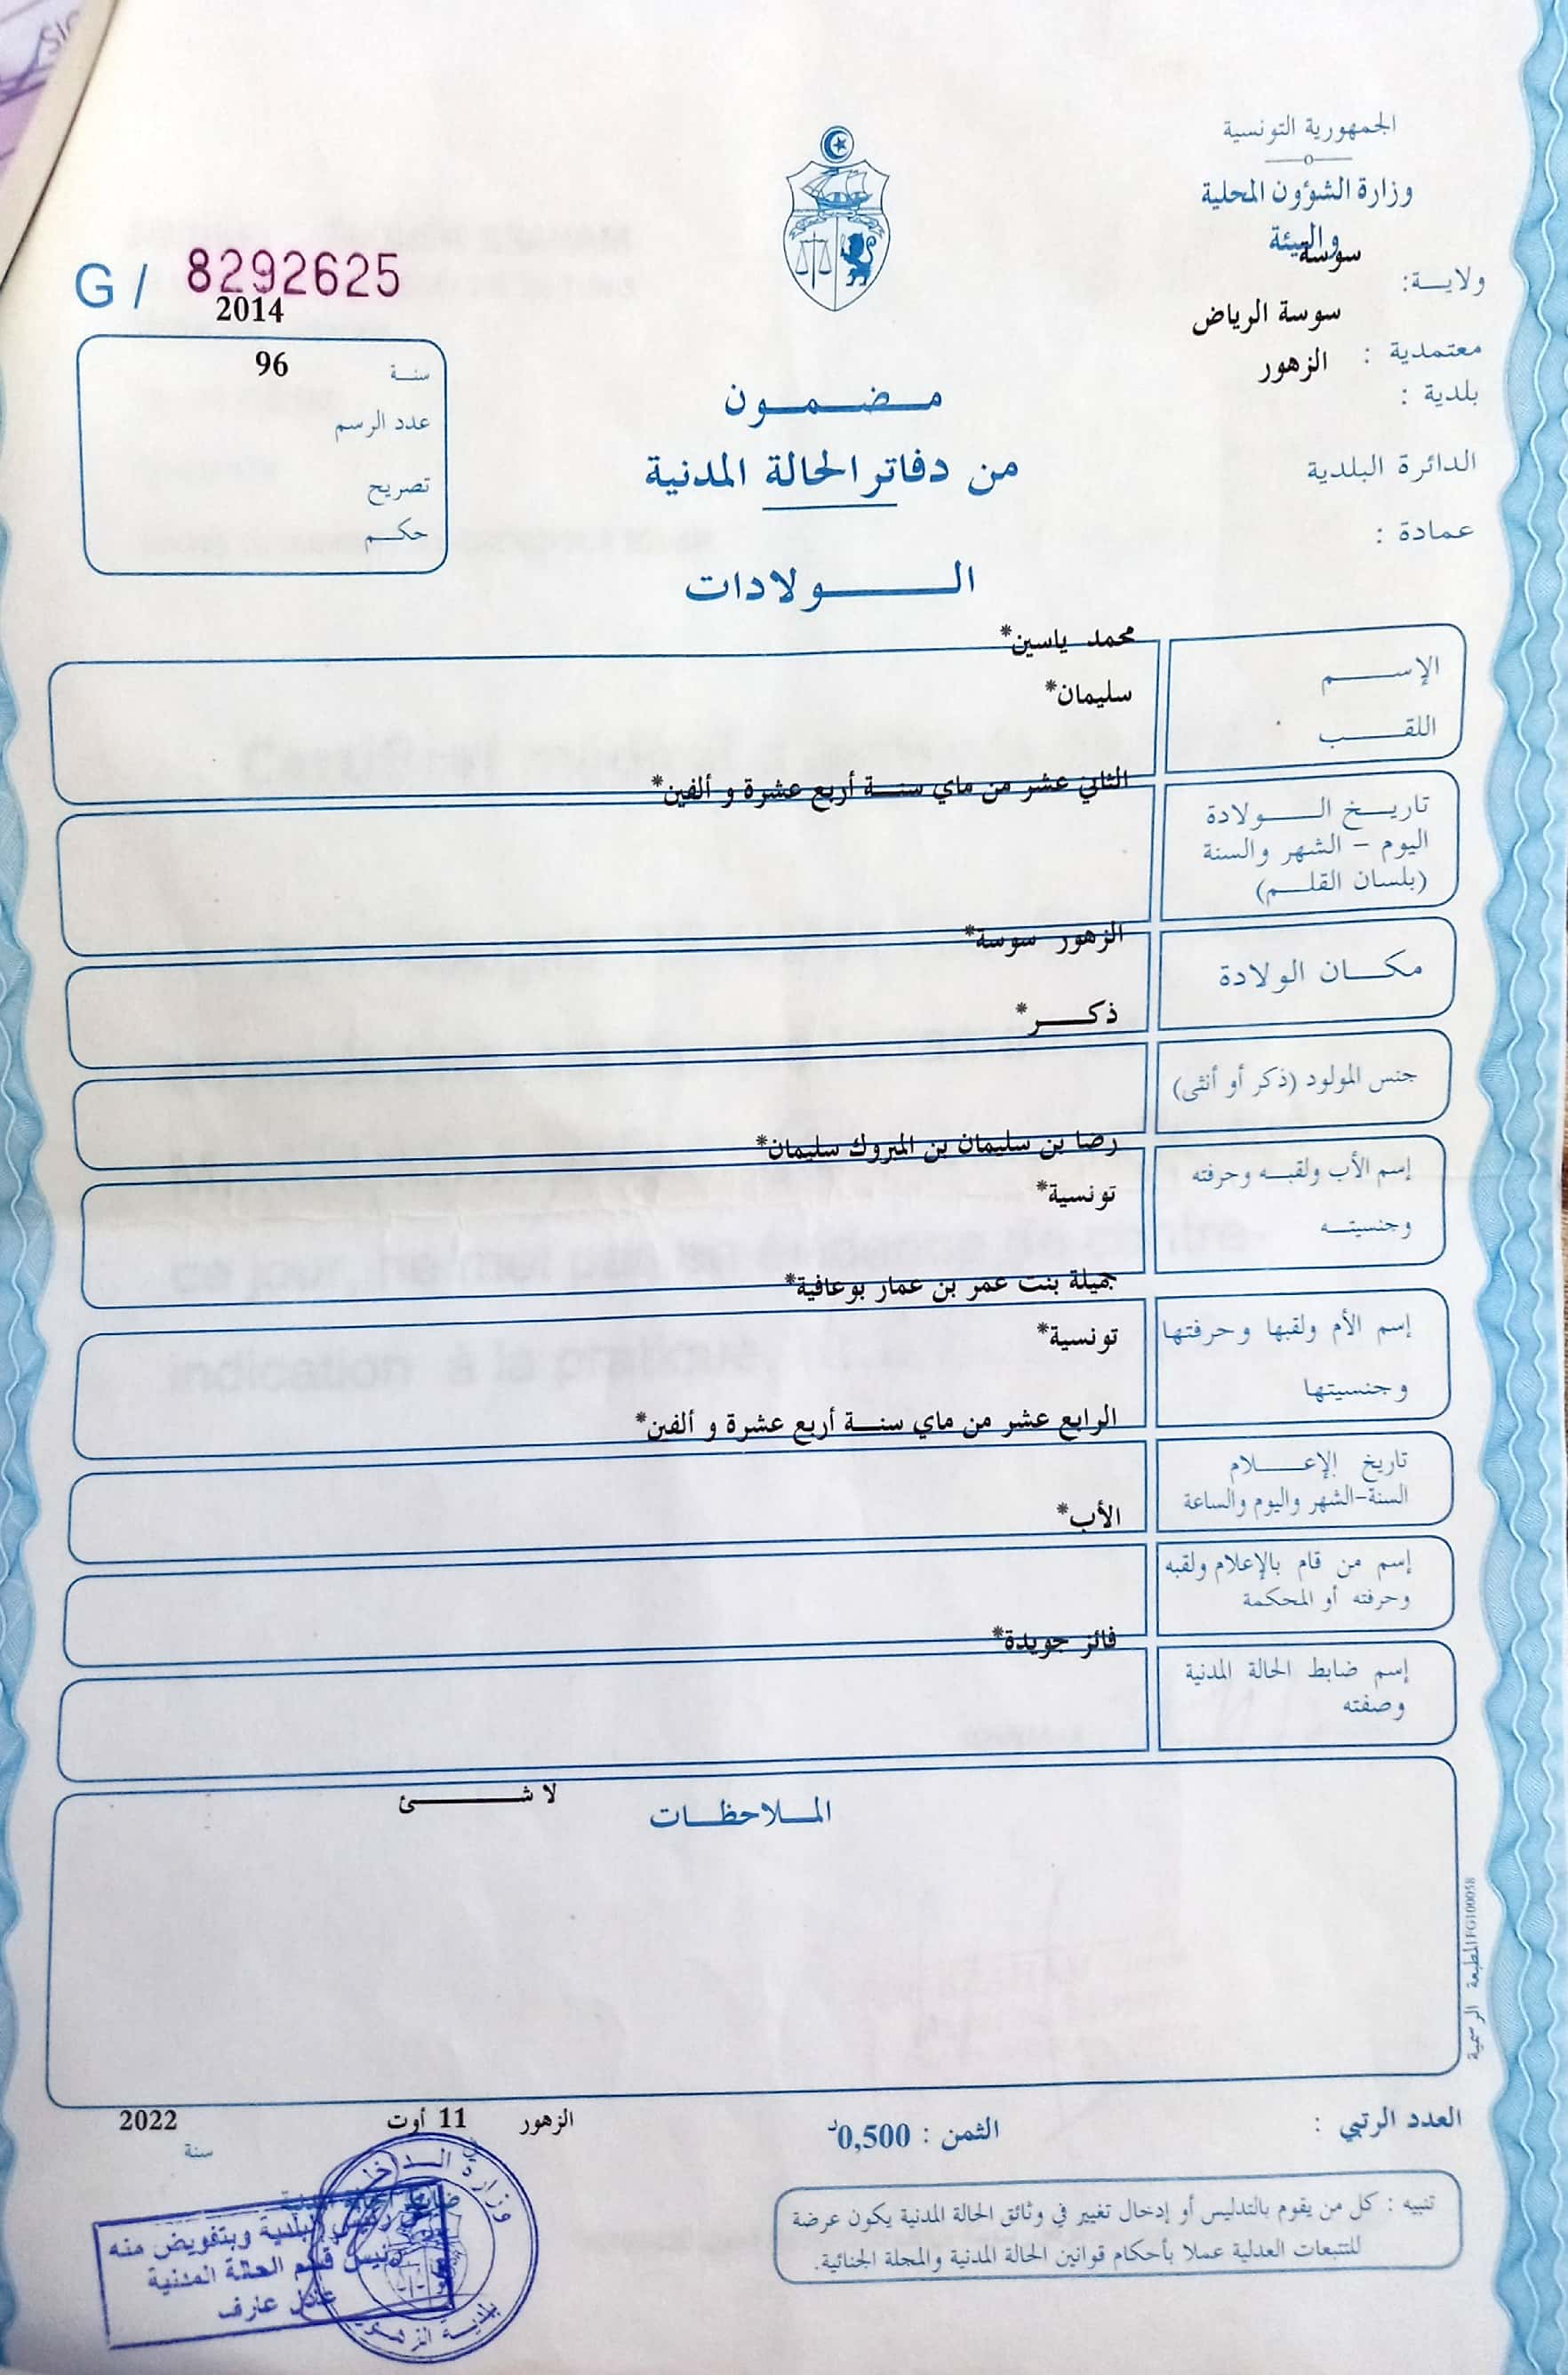 الجمهورية التونسية
وزارة الشؤون المحلية
والبيئة
ولايـــة: سوسة
معتمدية : سوسة الرياض
بلدية : الزهور
الدائرة البلدية
عمادة :
G / 8292625
2014
سنــة 96
عدد الرسم
تصريح
حكــم
مـــضـــمـــون
من دفاتر الحالة المدنية
الـــــــولادات
الإســـــم محمد ياسين*
اللقـــــب سليمان*
تاريـــخ الـــــولادة الثاني عشر من ماي سنـــة أربع عشرة و ألفين*
اليوم - الشهر والسنة
(بلسان القلـــم)
مكـــان الولادة الزهور سوسة*
ذكـــــر*
جنس المولود (ذكر أو أنثى)
إسم الأب ولقبــه وحرفته رضا بن سليمان بن المبروك سليمان*
وجنسيتــه تونسية*
إسم الأم ولقبها وحرفتها جميلة بنت عمر بن عمار بوعافية*
وجنسيتها تونسية*
تاريخ الإعـــــلام الرابع عشر من ماي سنـــة أربع عشرة و ألفين*
السنة-الشهر واليوم والساعة
إسم من قام بالإعلام ولقبه الأب*
وحرفته أو المحكمة
إسم ضابط الحالة المدنية فائز جويدة*
وصفته
الملاحظات لا شـــــــئ
المطبعة الرسمية FG100058
العدد الرتبي :
الثمن : 0,500د
الزهور 11 أوت 2022
سنة
تنبيه : كل من يقوم بالتدليس أو إدخال تغيير في وثائق الحالة المدنية يكون عرضة
للتتبعات العدلية عملا بأحكام قوانين الحالة المدنية والمجلة الجنائية.
وزارة الـداخلية
رئيس البلدية وبتفويض منه
رئيس قسم الحالة المدنية
عادل عارف
بلدية الزهور